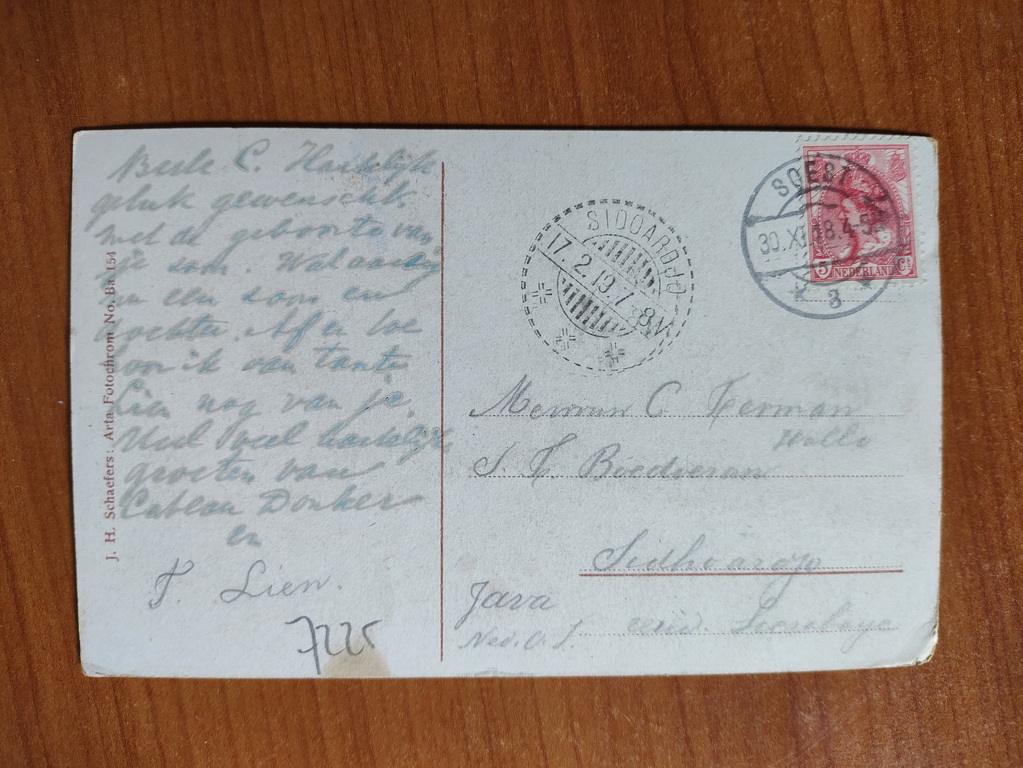 Beste C. Hartelijk
geluk gewenscht
met de geboorte van
je zoon. Wat aardig
zoon en
dochter. Af en toe
hoor ik van tante
Lien nog van je.
Heel veel hartelijke
groeten van
Donker
en
T. Lien.
7225
J. H. Schaefers: Arta Fotochrom No. Ba 154
SIDOARDJO
17.2.19.7
SOEST
30.XI.18.4-5
3
5 NEDERLAND Ct
Mevrouw C.
S. F.
Sidhoardjo
Java
Ned. O. I.